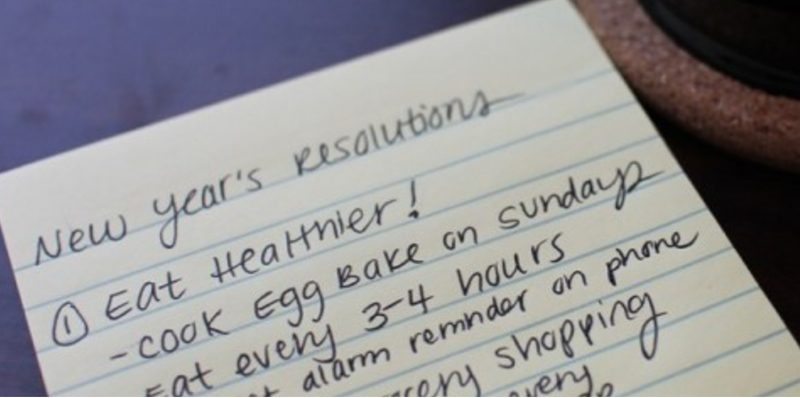 New year's resolutions
① Eat Healthier!
- cook Egg Bake on sundays
Eat every 3-4 hours
alarm reminder on phone
shopping